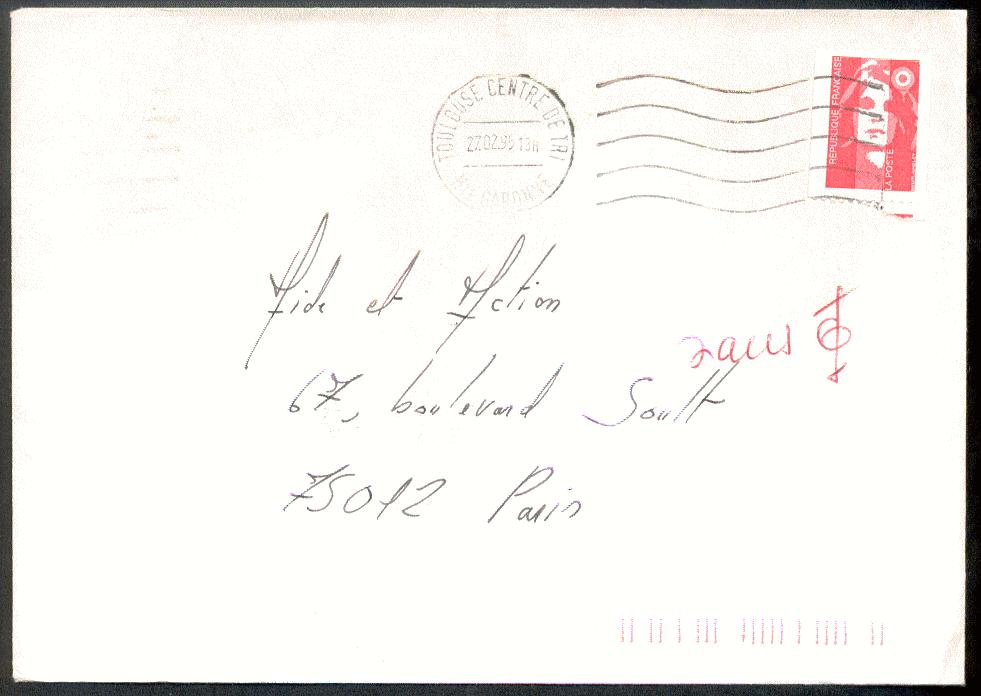 TOULOUSE CENTRE DE TRI
27.02.95 13H
HTE GARONNE
REPUBLIQUE FRANÇAISE
LA POSTE
Aide et Action
sans
67, boulevard Soult
75012 Paris